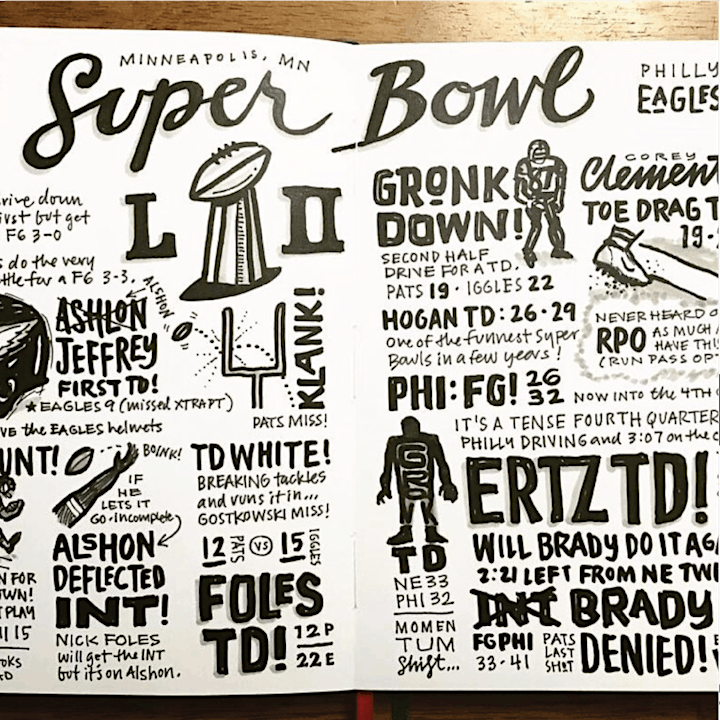 MINNEAPOLIS, MN
Super Bowl
PHILLY
EAGLES
LII
rive down
irst but get
FG 3-0
s do the very
ttle for a FG 3-3.
ALSHON
ASHLON
JEFFREY
FIRST TD!
★ EAGLES 9 (missed XTRA PT)
VE the EAGLES helmets
KLANK!
PATS MISS!
UNT!
BOINK!
IF
HE
LETS IT
GO-incomplete
ALSHON
DEFLECTED
INT!
NICK FOLES
will get the INT
but it's on Alshon.
N FOR
WN!
T PLAY
15
OKS
D
TD WHITE!
BREAKING tackles
and runs it in...
GOSTKOWSKI MISS!
12 PATS VS 15 IGGLES
FOLES
TD! 12P
22E
GRONK
DOWN!
SECOND HALF
DRIVE FOR A TD.
PATS 19 · IGGLES 22
HOGAN TD: 26·29
One of the funnest Super
Bowls in a few years!
PHI: FG! 26
32
COREY
Clement
TOE DRAG T
19-
NEVER HEARD O
RPO AS MUCH A
HAVE THI
(RUN PASS OP
NOW INTO the 4TH
IT'S A TENSE FOURTH QUARTER
PHILLY DRIVING and 3:07 on the c
GRO
TD
NE 33
PHI 32
MOMEN
TUM
Shift...
ERTZ TD!
WILL BRADY DO IT AGA
2:21 LEFT FROM NE TWE
INT BRADY
FG PHI
33-41
PATS
LAST
SH!T
DENIED!